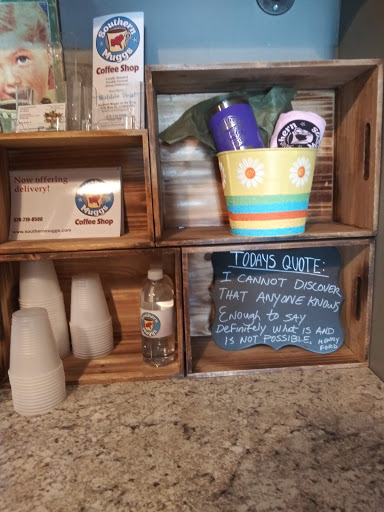 Southern
Muggs
Coffee Shop
Now offering
delivery!
Southern
Muggs
Coffee Shop
www.southernmuggs.com
Southern
TODAYS QUOTE:
I CANNOT DISCOVER
THAT ANYONE KNOWS
ENOUGH to SAY
DefiNitely what is AND
IS NOT POSSIBLE.
HENRY
FORD